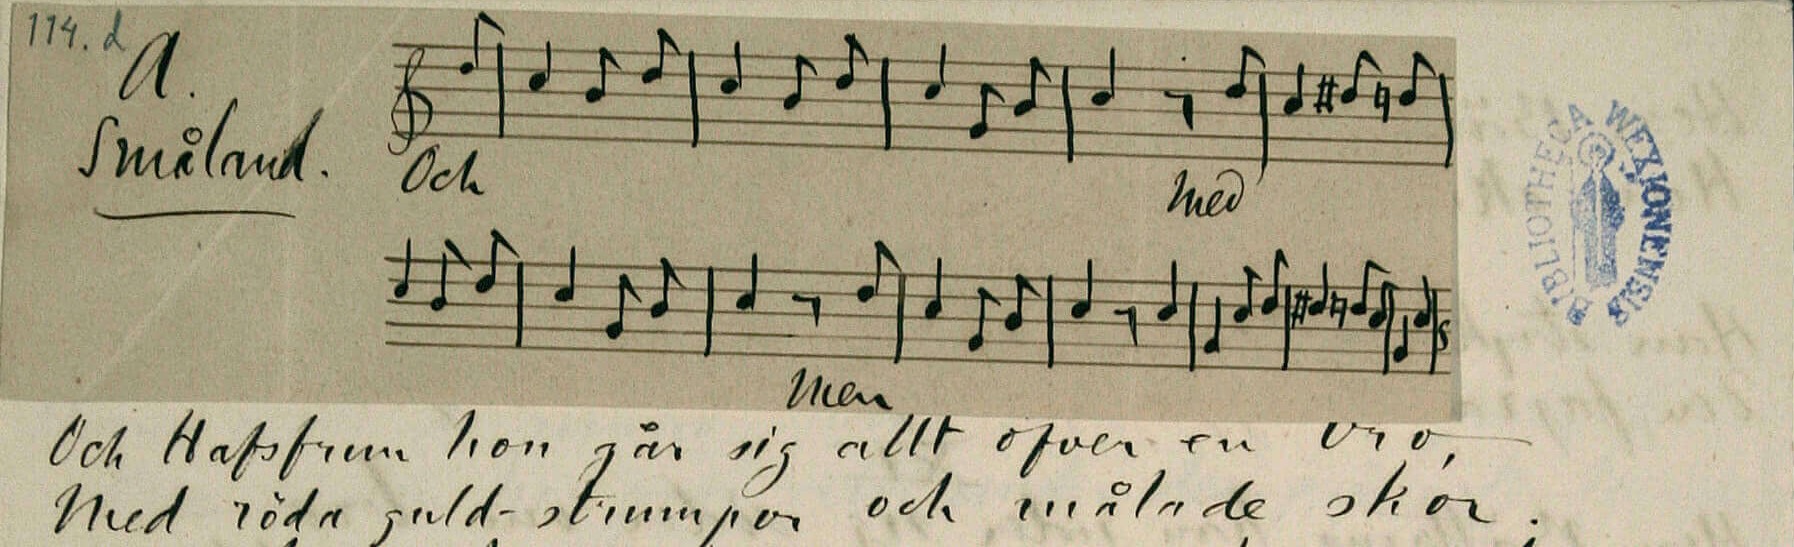 114. d
A.
Småland.
Och
Med
Men
Och Hafsfrun hon går sig allt öfver en bro,
Med röda guld-strumpor och målade skor.
BIBLIOTHECA WEXIONENSIS